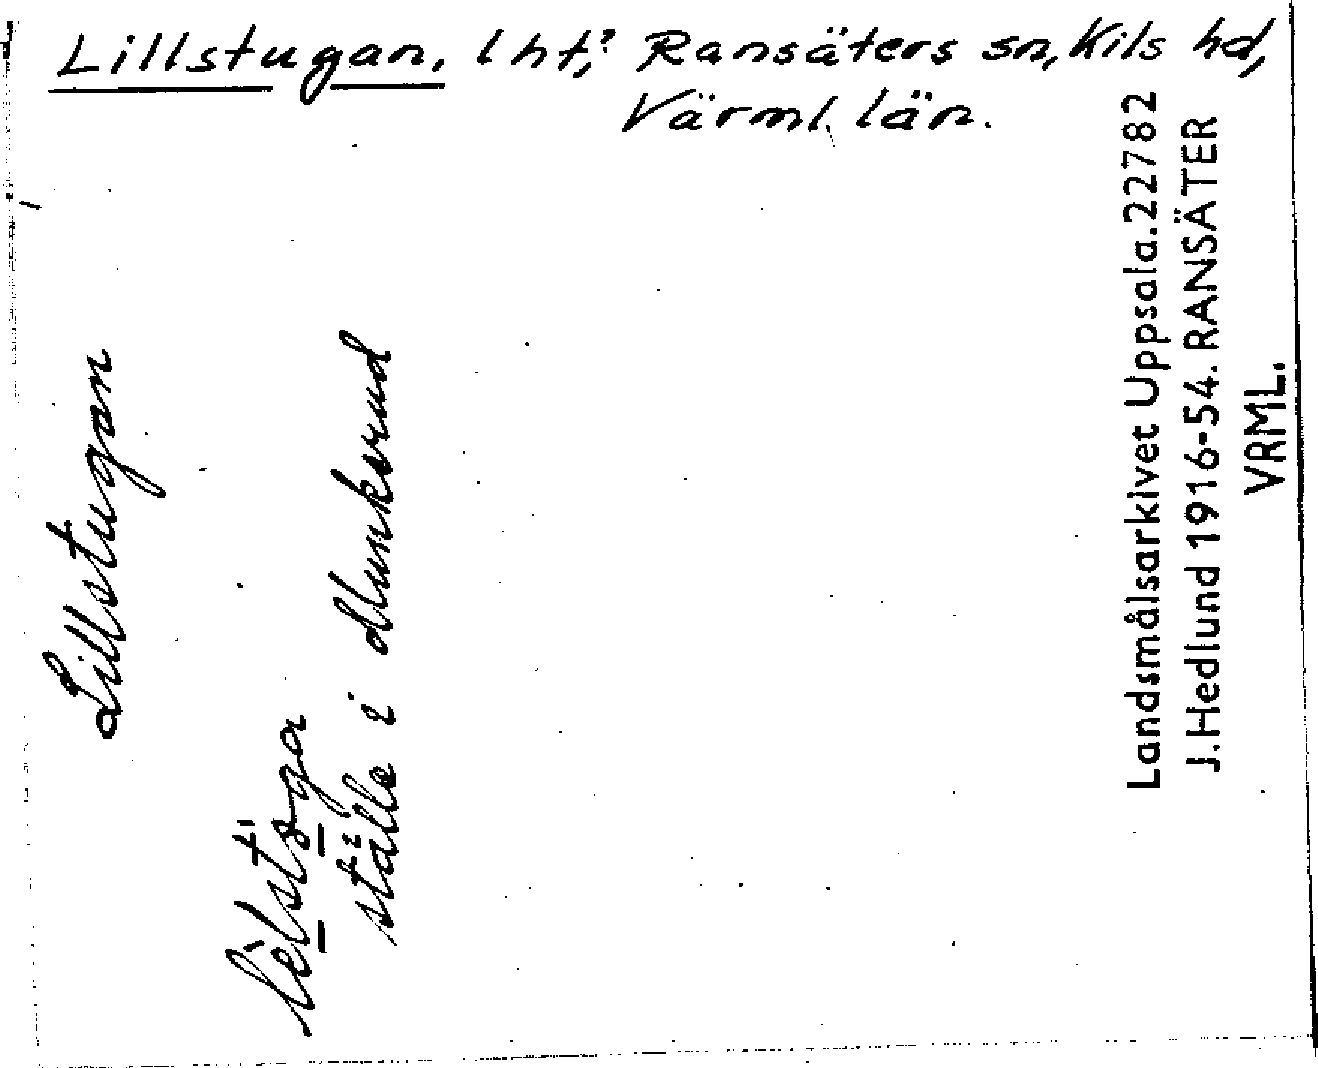 Lillstugan, lht? Ransäters sn, Kils hd,
Värml. län.
Lillstugan
ställe i Munkerud
Landsmålsarkivet Uppsala. 22782
J. Hedlund 1916-54. RANSÄTER
VRML.